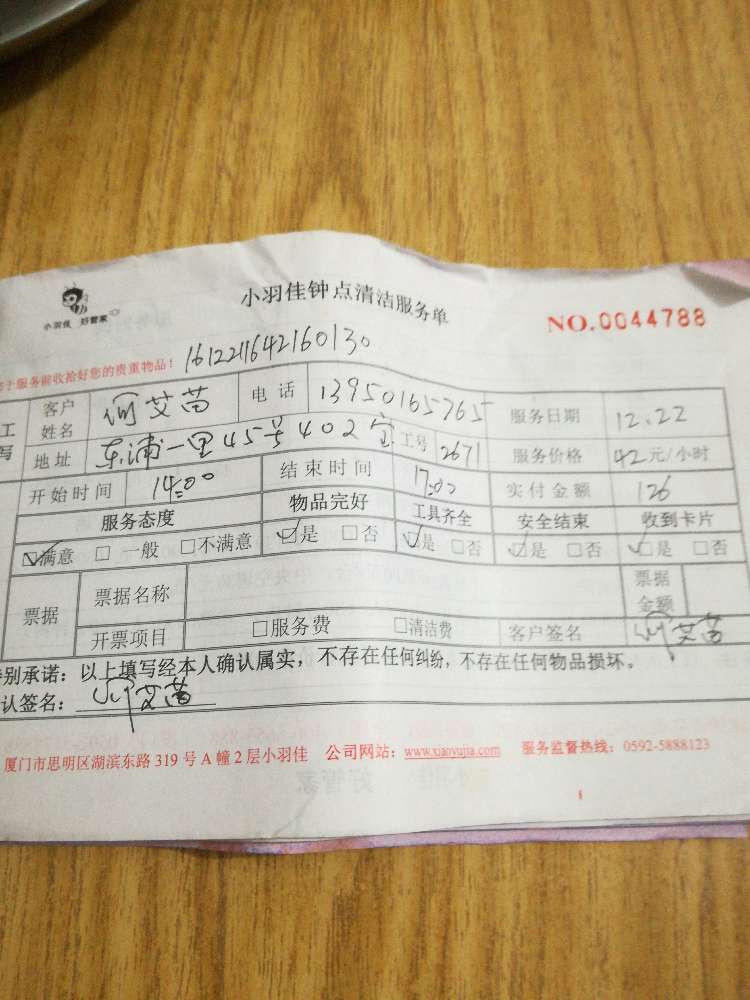 小羽佳 好管家
小羽佳钟点清洁服务单
NO.0044788
于服务前收拾好您的贵重物品! 1612211642160130
工 客户姓名 何艾苗 电话 13950165765 服务日期 12.22
写 地址 东浦一里45号402室 工号 2671 服务价格 42元/小时
开始时间 14:00 结束时间 17:00 实付金额 126
服务态度 物品完好 工具齐全 安全结束 收到卡片
☑满意 □一般 □不满意 ☑是 □否 ☑是 □否 ☑是 □否 ☑是 □否
票据 票据名称 票据金额
开票项目 □服务费 □清洁费 客户签名 何艾苗
别承诺:以上填写经本人确认属实,不存在任何纠纷,不存在任何物品损坏。
认签名: 何艾苗
厦门市思明区湖滨东路319号A幢2层小羽佳 公司网站:www.xiaoyujia.com 服务监督热线:0592-5888123